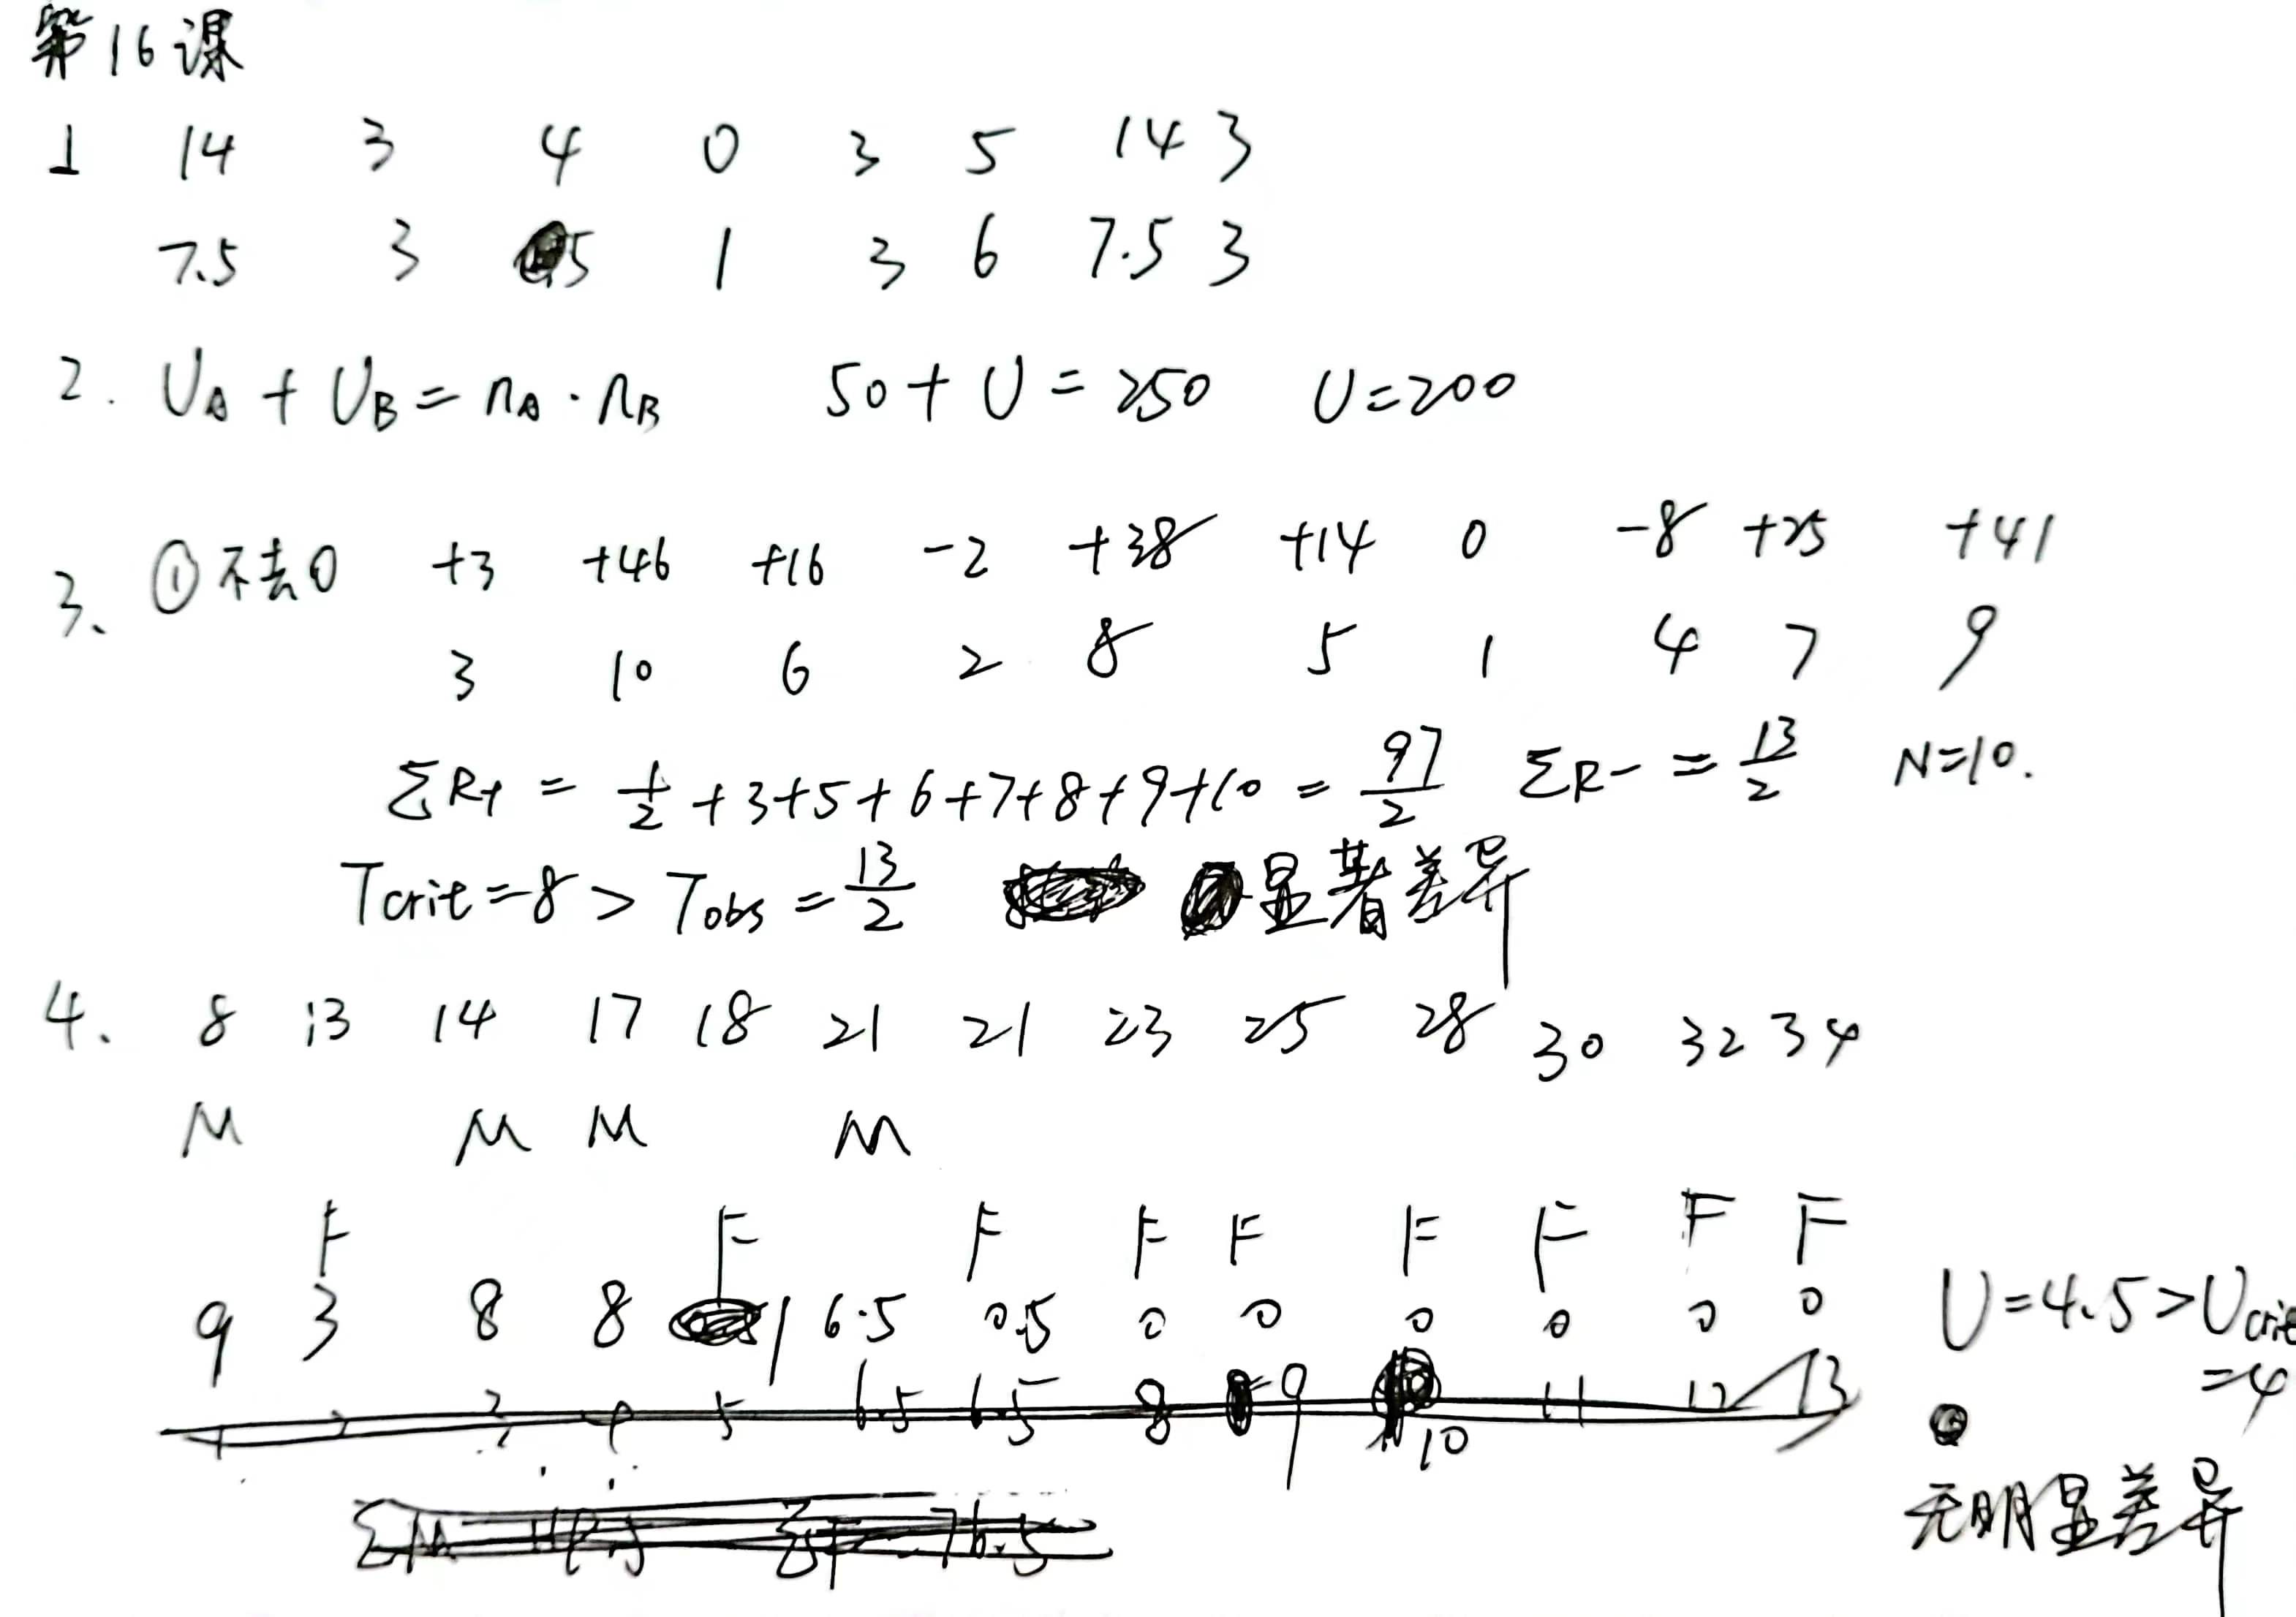 第16课
1 14 3 4 0 3 5 14 3
7.5 3 5 1 3 6 7.5 3
2. UA + UB = nA · nB 50 + U = 250 U = 200
3、 ① 不去0 +3 +46 +16 -2 +38 +14 0 -8 +25 +41
3 10 6 2 8 5 1 4 7 9
ΣR+ = 1/2 + 3 + 5 + 6 + 7 + 8 + 9 + 10 = 97/2 ΣR- = 13/2 N=10.
Tcrit = 8 > Tobs = 13/2 显著差异
4. 8 13 14 17 18 21 21 23 25 28 30 32 34
M M M M
F F F F F F F F F
9 3 8 8 1 6.5 0.5 0 0 0 0 0 0 U = 4.5 > Ucrit
= 4
5 6.5 6.5 8 9 10 11 12 13
无明显差异